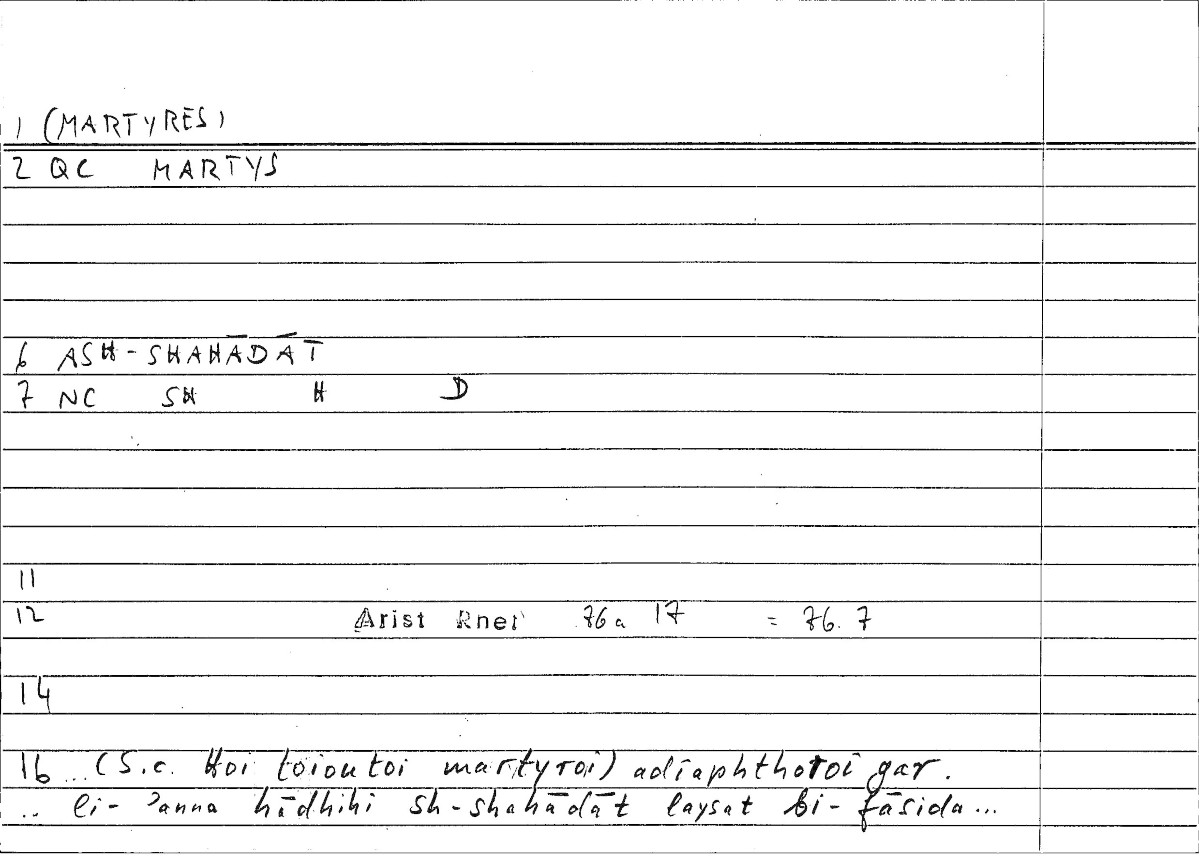 1 (MARTYRES)
2 QC MARTYS
6 ASH-SHAHĀDĀT
7 NC SH H D
11
12 Arist Rhet 76a 17 = 76.7
14
16 ... (S.c. Hoi toioutoi martyroi) adiaphthoroi gar.
.. li-ʾanna hādhihi sh-shahādāt laysat bi-fāsida...